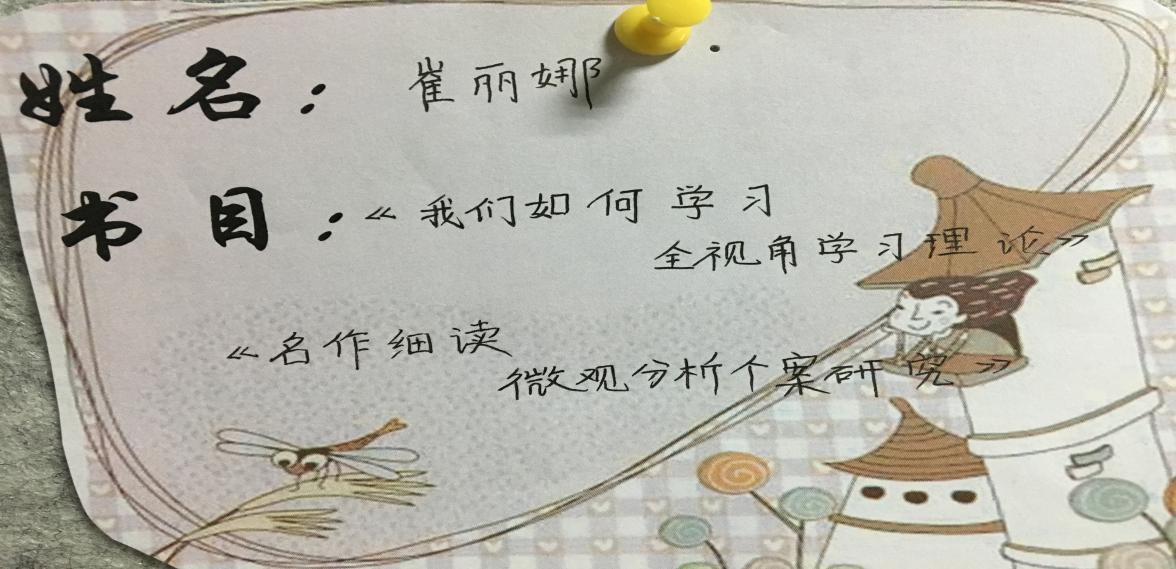 姓名：崔丽娜
书目：《我们如何学习
全视角学习理论》
《名作细读
微观分析个案研究》